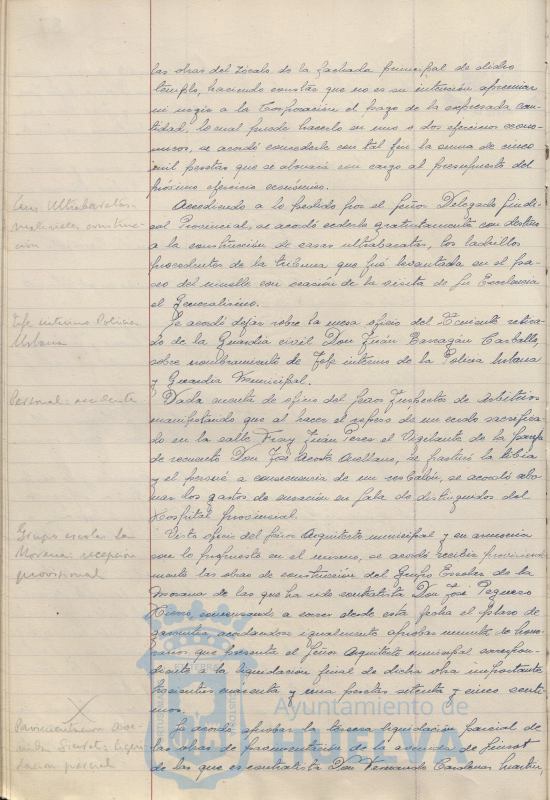 las obras del zócalo de la fachada principal de dicho
templo, haciendo constar que no es su intención apremiar
ni urgir a la Corporación el pago de la expresada can-
tidad, lo cual puede hacerlo en uno o dos ejercicios econo-
micos, se acordó concederle con tal fin la suma de cinco
mil pesetas que se abonará con cargo al presupuesto del
próximo ejercicio económico.
Cons. Ultrabaratas-
materiales construc-
ción
Accediendo a lo pedido por el Señor Delegado Sindi-
cal Provincial, se acordó cederle gratuitamente con destino
a la construcción de casas ultrabaratas, los ladrillos
procedentes de la tribuna que fué levantada en el pa-
seo del muelle con ocasión de la visita de Su Excelencia
el Generalísimo.
Jefe interino Policia
Urbana
Se acordó dejar sobre la mesa oficio del Teniente retira-
do de la Guardia civil Don Juán Barragán Carballo,
sobre nombramiento de Jefe interino de la Policia Urbana
y Guardia Municipal.
Personal: accidente
Dada cuenta de oficio del Señor Inspector de Arbitrios
manifestando que al hacer el repeso de un cerdo sacrifica-
do en la calle Fray Juán Perez el Vigilante de la
de recuento Don José Acosta Arellano, se fracturó la tibia
y el peroné a consecuencia de un resbalón, se acordó abo-
nar los gastos de curación en Sala de distinguidos del
Hospital Provincial.
Grupo escolar La
Morana: recepción
provisional
Visto oficio del Señor Arquitecto municipal y en armonia
con lo propuesto en el mismo, se acordó recibir provisional-
mente las obras de construcción del Grupo Escolar de la
Morana de las que ha sido contratista Don José Peguero
comenzando a correr desde esta fecha el plazo de
garantia, acordandose igualmente aprobar minuta de hono-
rarios que presenta el Señor Arquitecto municipal correspon-
diente a la liquidación final de dicha obra importante
trescientas cuarenta y una pesetas setenta y cinco centi-
mos.
Pavimentación Ave-
nida Siurot: liqui-
dación parcial
Se acordó aprobar la tercera liquidación parcial de
las obras de pavimentación de la avenida de Siurot
de las que es contratista Don Fernando Cardenas Martin,
Ayuntamiento de
HUELVA